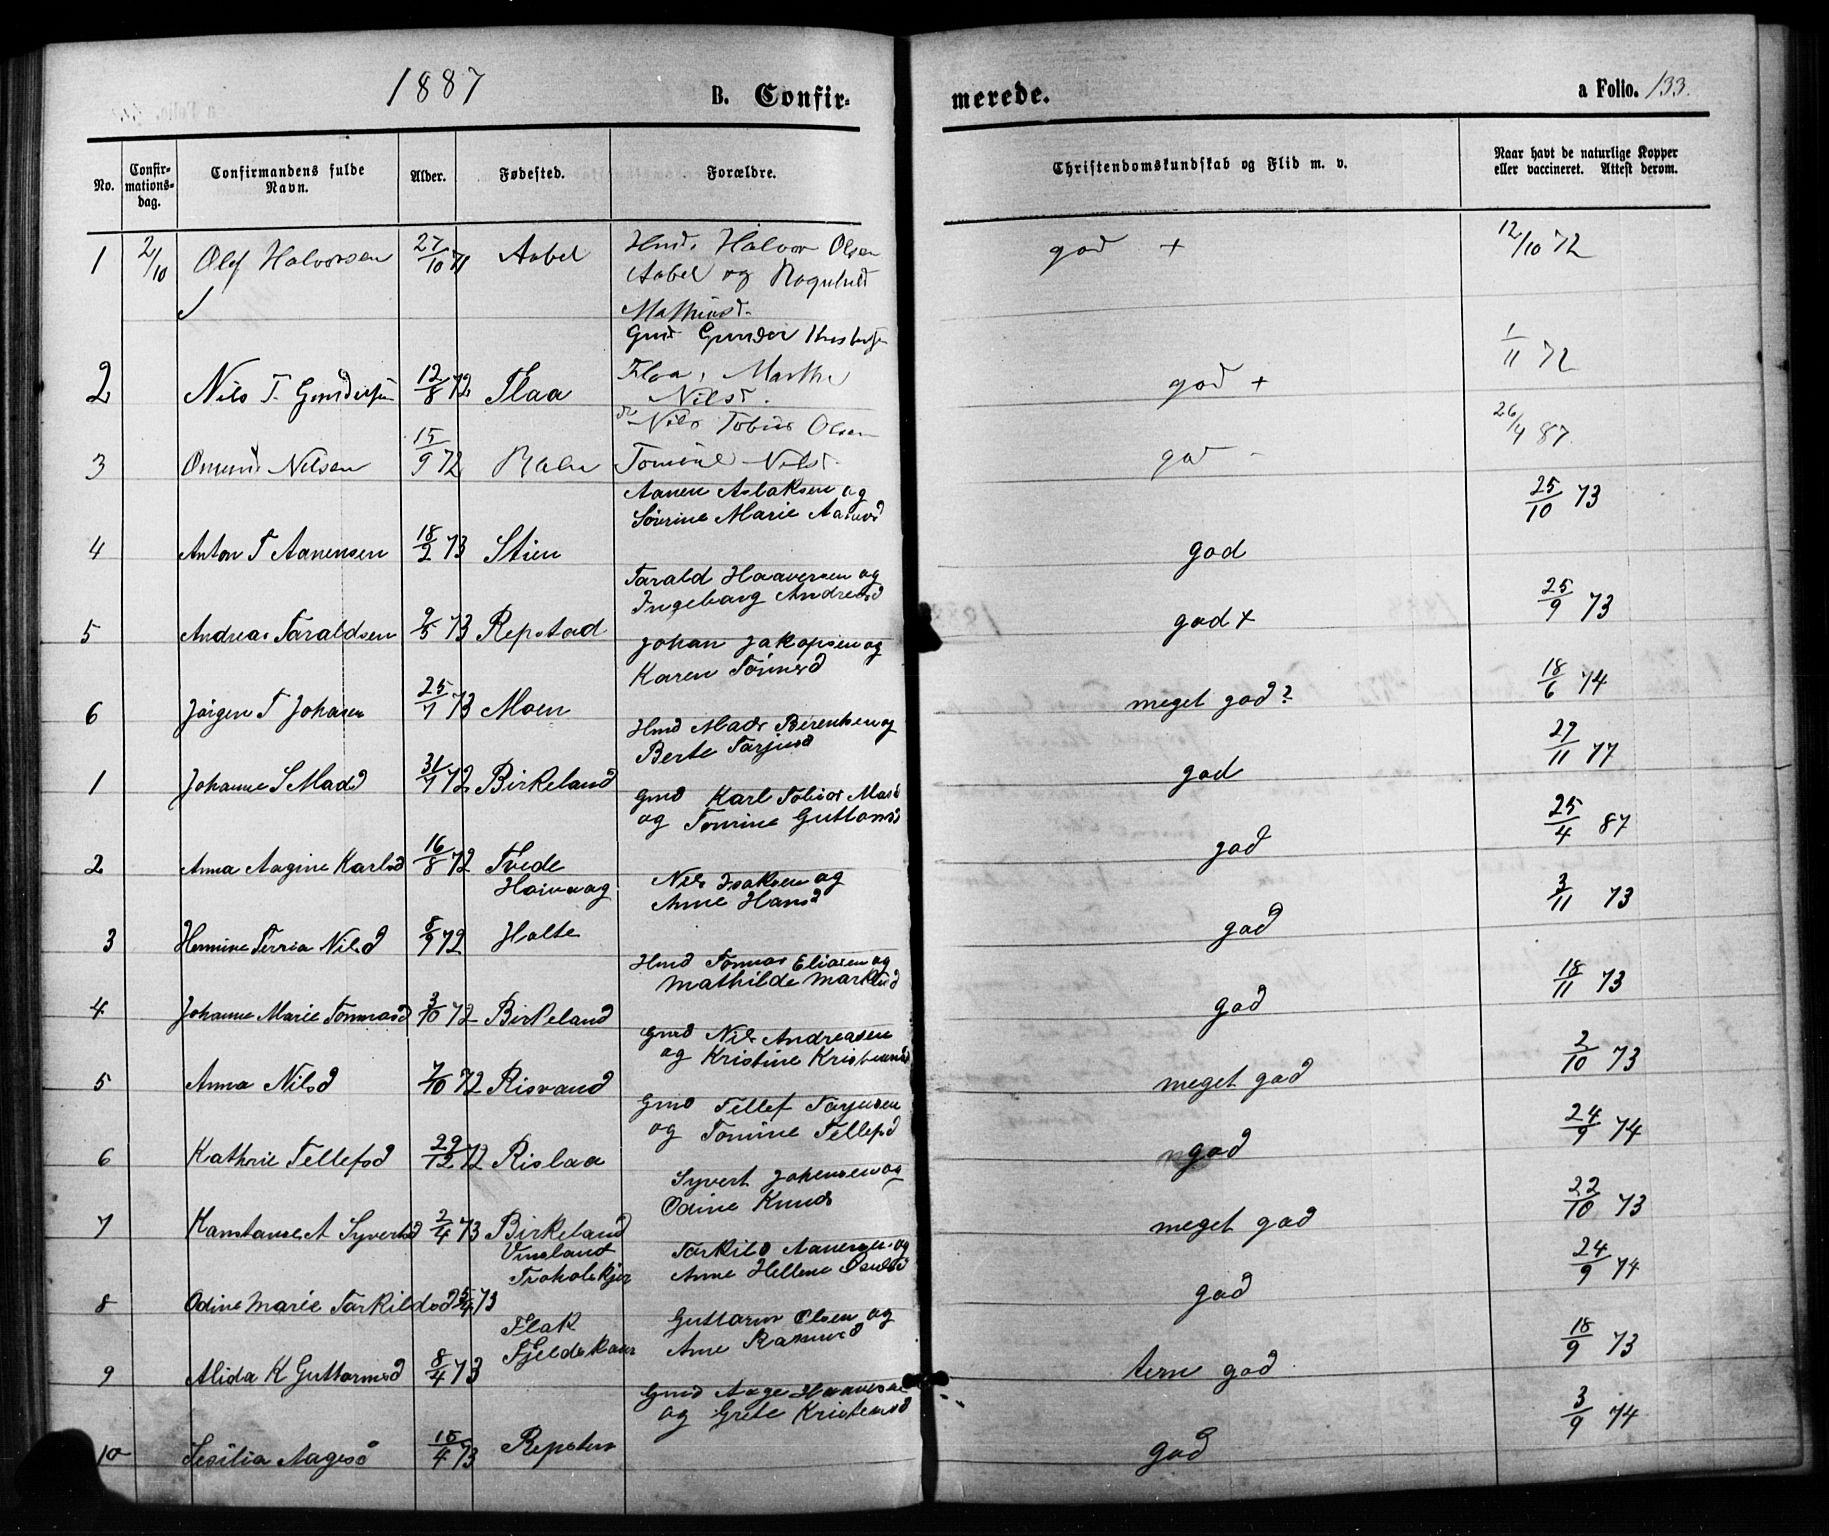 1887 B. Confirmerede. a Folio. 133.
No. Confirmationsdag. Confirmandens fulde Navn. Alder. Fødested. Forældre. Christendomskundskab og Flid m. v. Naar havt de naturlige Kopper eller vaccineret. Attest derom.
1 2/10 Olef Halvorsen 27/10 71 Aabel Hmd. Halvor Olsen god + 12/10 72
Aabel og
Gmd Gunder
2 Nils T. Gundersen 12/8 72 Flaa Flaa, Marthe god + 1/11 72
Nilsd.
Nils Tobias Olsen
3 Nilsen 15/9 72 Tomine Nilsd. god - 26/4 87
Aanen Aslaksen og
Sørine Marie
4 Anton T Aanensen 18/2 73 Stien god 25/10 73
Tarald Haaversen og
Ingeborg Andreasd
5 Andreas Taraldsen 9/5 73 Repstad god + 25/9 73
Johan Jakopsen og
Karen Tønnesd
6 Jørgen T Johansen 25/7 73 Moen meget god? 18/6 74
Hmd Mads Berentsen og
Berte Tarjusd
1 Johanne S Madsd 31/7 72 Birkeland god 27/11 77
Gmd Karl Tobias
og Tomine Guttormsd
2 Anna Aagine Karlsd 16/8 72 Tvede god 25/4 87
Høivaag
Nils Isaksen og
Anne Hansd
3 Hermine Terria Nilsd 8/9 72 Holte god 3/11 73
Hmd Tommas Eliasen og
Mathilde
4 Johanne Marie Tommasd 3/10 72 Birkeland god 18/11 73
Gmd Nils Andreasen
og Kristine
5 Anna Nilsd 7/10 72 Risvand meget god 2/10 73
Gmd Tellef Tarjusen
og Tomine Tellefsd
6 Kathrie Tellefsd 29/12 72 Rislaa god 24/9 74
Syvert Johensen og
Odine Knuds
7 Konstanse A Syvertsd 2/4 73 Birkeland meget god 22/10 73
Vinsland
Tarkild Aanensen og
Anne Hellene
8 Odine Marie Tarkildsd 25/4 73 god 24/9 74
Flak
Guttorm Olsen og
Ane Rasmusd
9 Alida K Guttormsd 8/4 73 tem god 18/9 73
Gmd Aage
og Grete Kristensd
10 Sesilia Aagesd 15/4 73 god 3/9 74